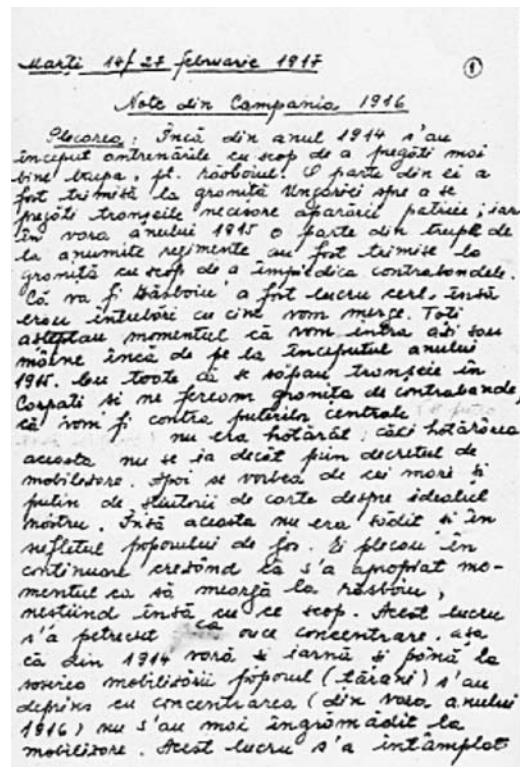 Marți 14/27 februarie 1917
1
Note din Campania 1916
Plecarea: Încă din anul 1914 s'au
început antrenările cu scop de a pregăti mai
bine trupa, pt. războiul. O parte din ei a
fost trimisă la granița Ungariei spre a se
pregăti tranșeile necesare apărării patriei; iar
în vara anului 1915 o parte din trupele de
la anumite regimente au fost trimise la
graniță cu scop de a împiedica contrabandele.
Că va fi Războiu a fost lucru cert, însă
erau întrebări cu cine vom merge. Toți
așteptau momentul că vom intra azi sau
mâine încă de pe la începutul anului
1915. Cu toate că se săpau tranșeie în
Carpați si ne feream granița de contrabande,
că vom fi contra puterilor centrale
nu era hotărât; căci hotărârea
aceasta nu se ia decât prin decretul de
mobilizare. Apoi se vorbea de cei mari și
puțin de știutorii de carte despre idealul
nostru. Însă aceasta nu era sădit si în
sufletul poporului de jos. Ei plecau în
continuare crezând că s'a apropiat mo-
mentul ca să meargă la răsboiu,
neștiind însă cu ce scop. Acest lucru
s'a petrecut ca orice concentrare. așa
că din 1914 vară și iarnă și până la
sosirea mobilizării poporul (țărani) s'au
deprins cu concentrarea (din vara anului
1916) nu s'au mai îngrămădit la
mobilizare. Acest lucru s'a întâmplat